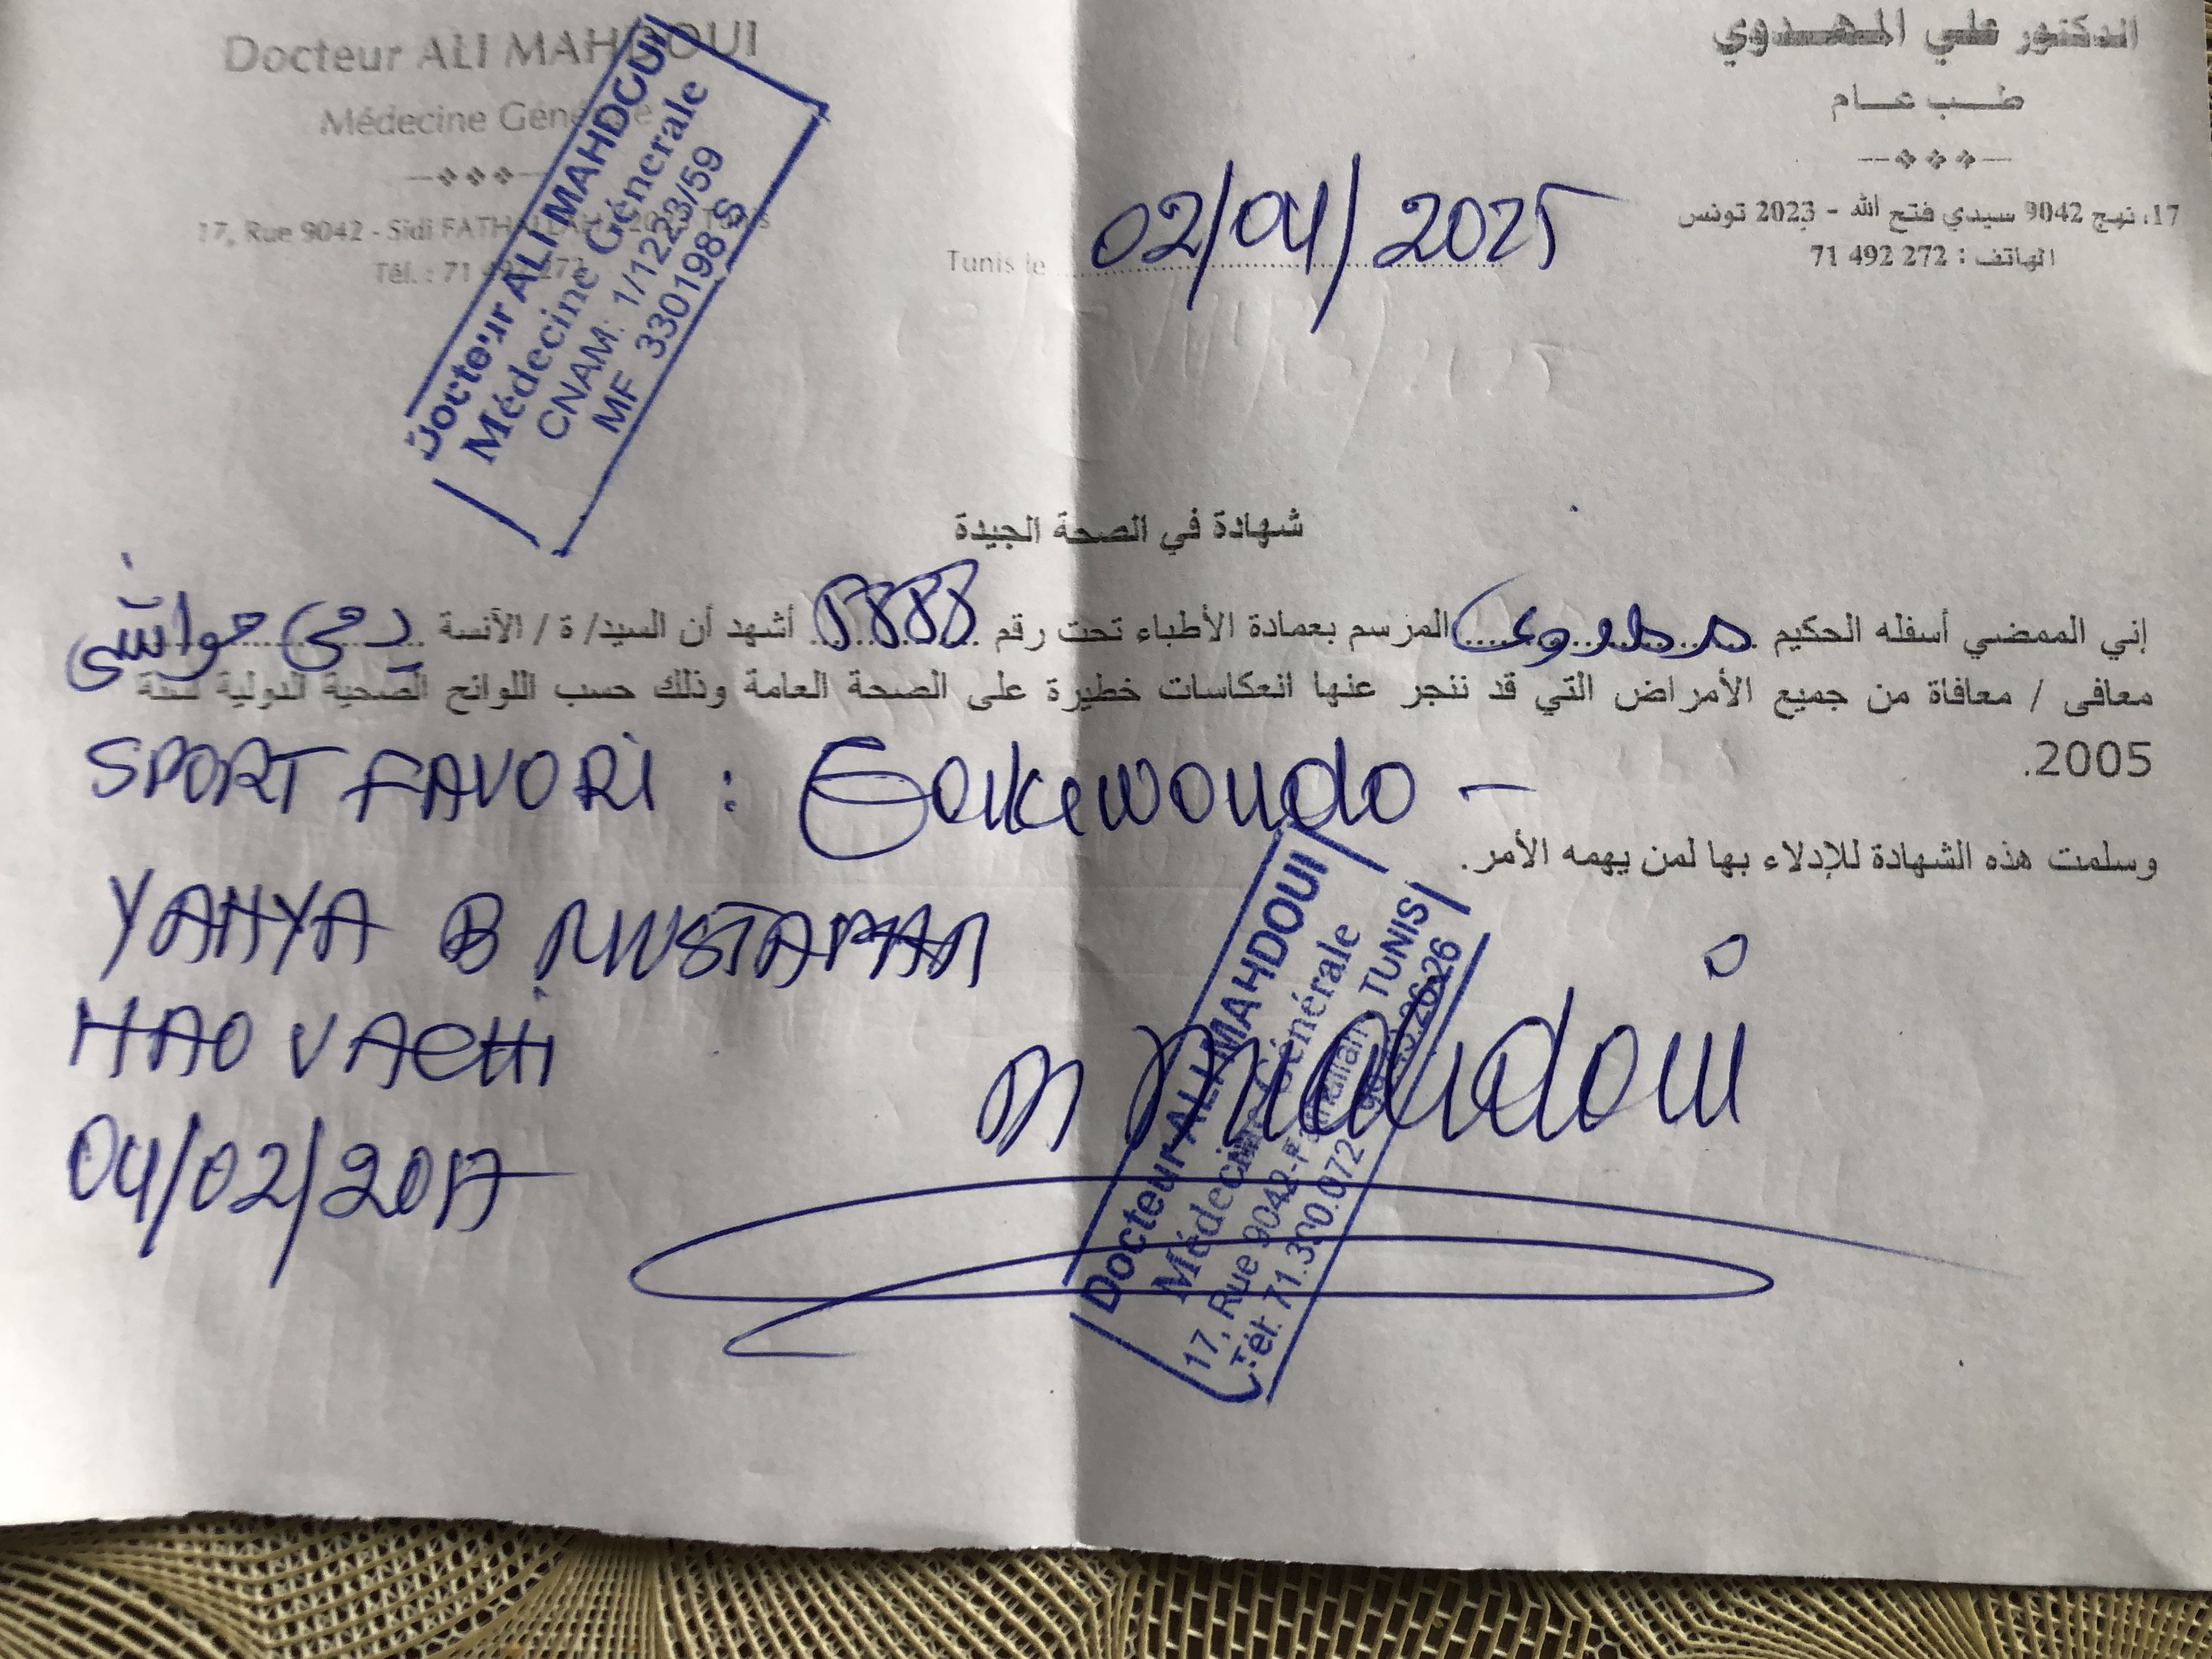 Docteur ALI MAHDOUI
Médecine Générale
17, Rue 9042 - Sidi FATHALLAH 2023 Tunis
Tél. : 71 492 272
الدكتور علي المهدوي
طب عام
17، نهج 9042 سيدي فتح الله - 2023 تونس
الهاتف : 272 492 71
Docteur ALI MAHDOUI
Médecine Générale
CNAM: 1/1223/59
MF 330198 S
Tunis le 02/04/2025
شهادة في الصحة الجيدة
إني الممضي أسفله الحكيم مهدوي المرسم بعمادة الأطباء تحت رقم أشهد أن السيد/ ة / الأنسة يحيى حواشي
معافى / معافاة من جميع الأمراض التي قد ننجر عنها انعكاسات خطيرة على الصحة العامة وذلك حسب اللوائح الصحية الدولية لسنة
2005.
SPORT FAVORI : Taekewondo -
وسلمت هذه الشهادة للإدلاء بها لمن يهمه الأمر.
YAHYA B MUSTAPHA
HAOUACHI
04/02/2017
Docteur ALI MAHDOUI
Médecine Générale
17, Rue 9042-Fathallah TUNIS
Tél: 71.390.072
Mahdoui